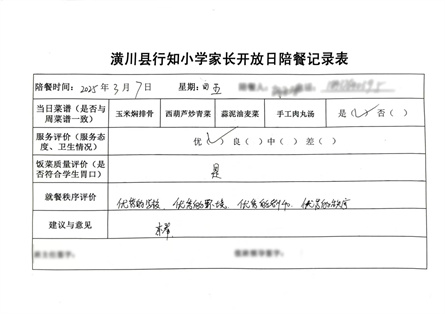 潢川县行知小学家长开放日陪餐记录表
陪餐时间：2025年3月7日 星期：五
当日菜谱（是否与周菜谱一致） 玉米焖排骨 西葫芦炒青菜 蒜泥油麦菜 手工肉丸汤 是（✓）否（ ）
服务评价（服务态度、卫生情况） 优（✓）良（ ）中（ ）差（ ）
饭菜质量评价（是否符合学生胃口） 是
就餐秩序评价 优秀的学校、优秀的环境、优秀的老师、优秀的秩序
建议与意见